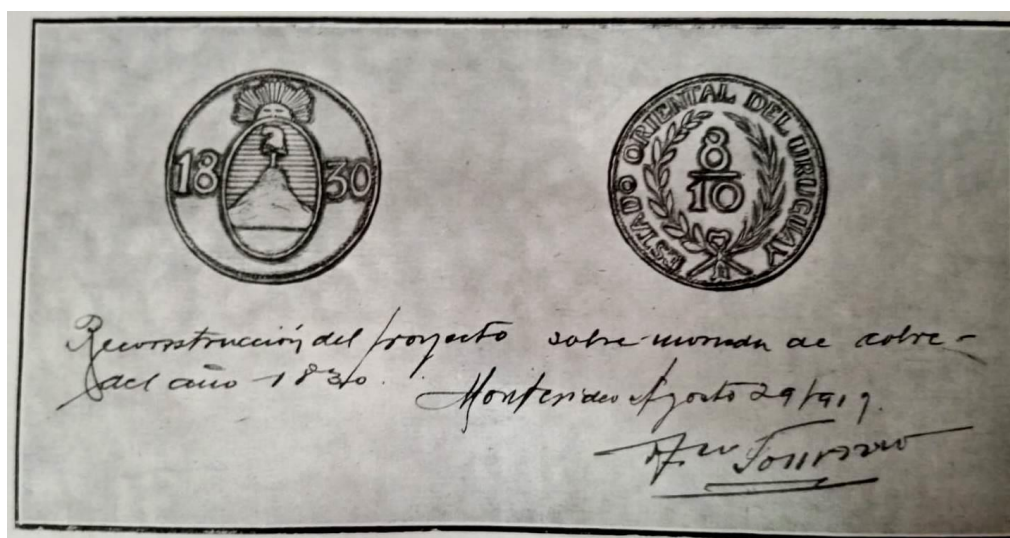 18 30
ESTADO ORIENTAL DEL URUGUAY
8
10
Reconstrucción del proyecto sobre moneda de cobre-
del año 1830.
Montevideo Agosto 29/919.